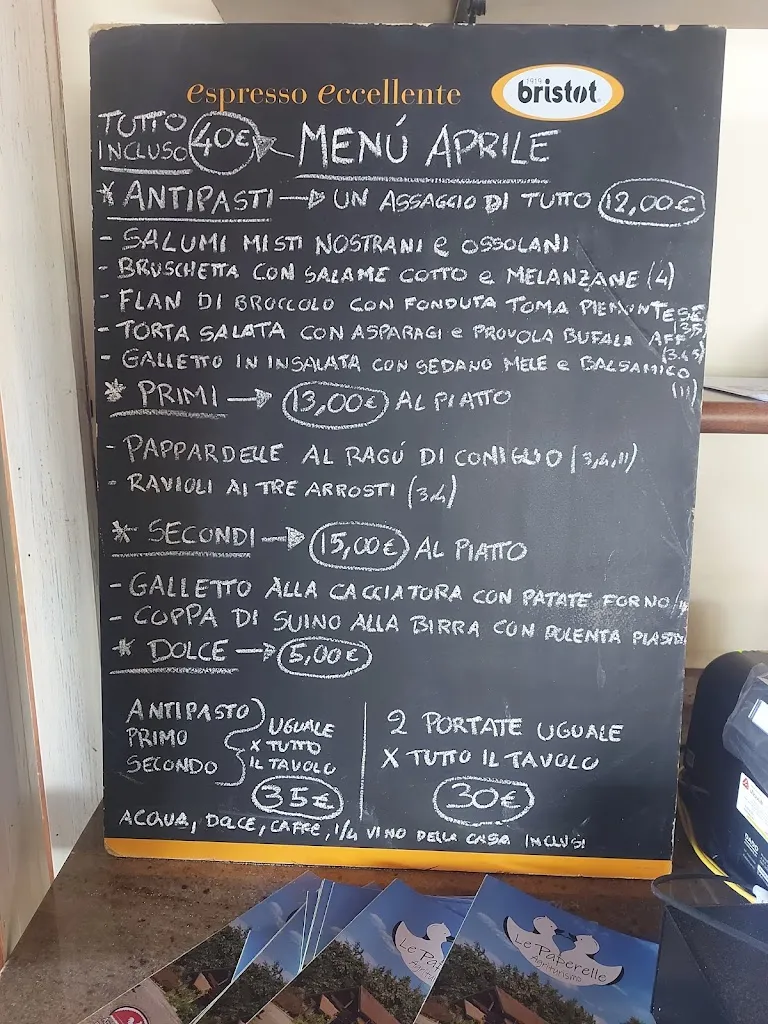 espresso eccellente
1919
bristot
TUTTO INCLUSO 40€ MENÚ APRILE
* ANTIPASTI → UN ASSAGGIO DI TUTTO 12,00€
- SALUMI MISTI NOSTRANI e OSSOLANI
- BRUSCHETTA CON SALAME COTTO e MELANZANE (4)
- FLAN DI BROCCOLO CON FONDUTA TOMA PIEMONTESE
- TORTA SALATA CON ASPARAGI e PROVOLA BUFALA AFF
- GALLETTO IN INSALATA CON SEDANO MELE e BALSAMICO
(11)
* PRIMI → 13,00€ AL PIATTO
- PAPPARDELLE AL RAGÚ DI CONIGLIO (3,4,11)
- RAVIOLI AI TRE ARROSTI (3,4)
* SECONDI → 15,00€ AL PIATTO
- GALLETTO ALLA CACCIATORA CON PATATE FORNO
- COPPA DI SUINO ALLA BIRRA CON POLENTA
* DOLCE → 5,00€
ANTIPASTO
PRIMO
SECONDO
UGUALE
X TUTTO
IL TAVOLO
35€
2 PORTATE UGUALE
X TUTTO IL TAVOLO
30€
ACQUA, DOLCE, CAFFE, 1/4 VINO DELLA CASA INCLUSI
Le Paperelle
Agriturismo